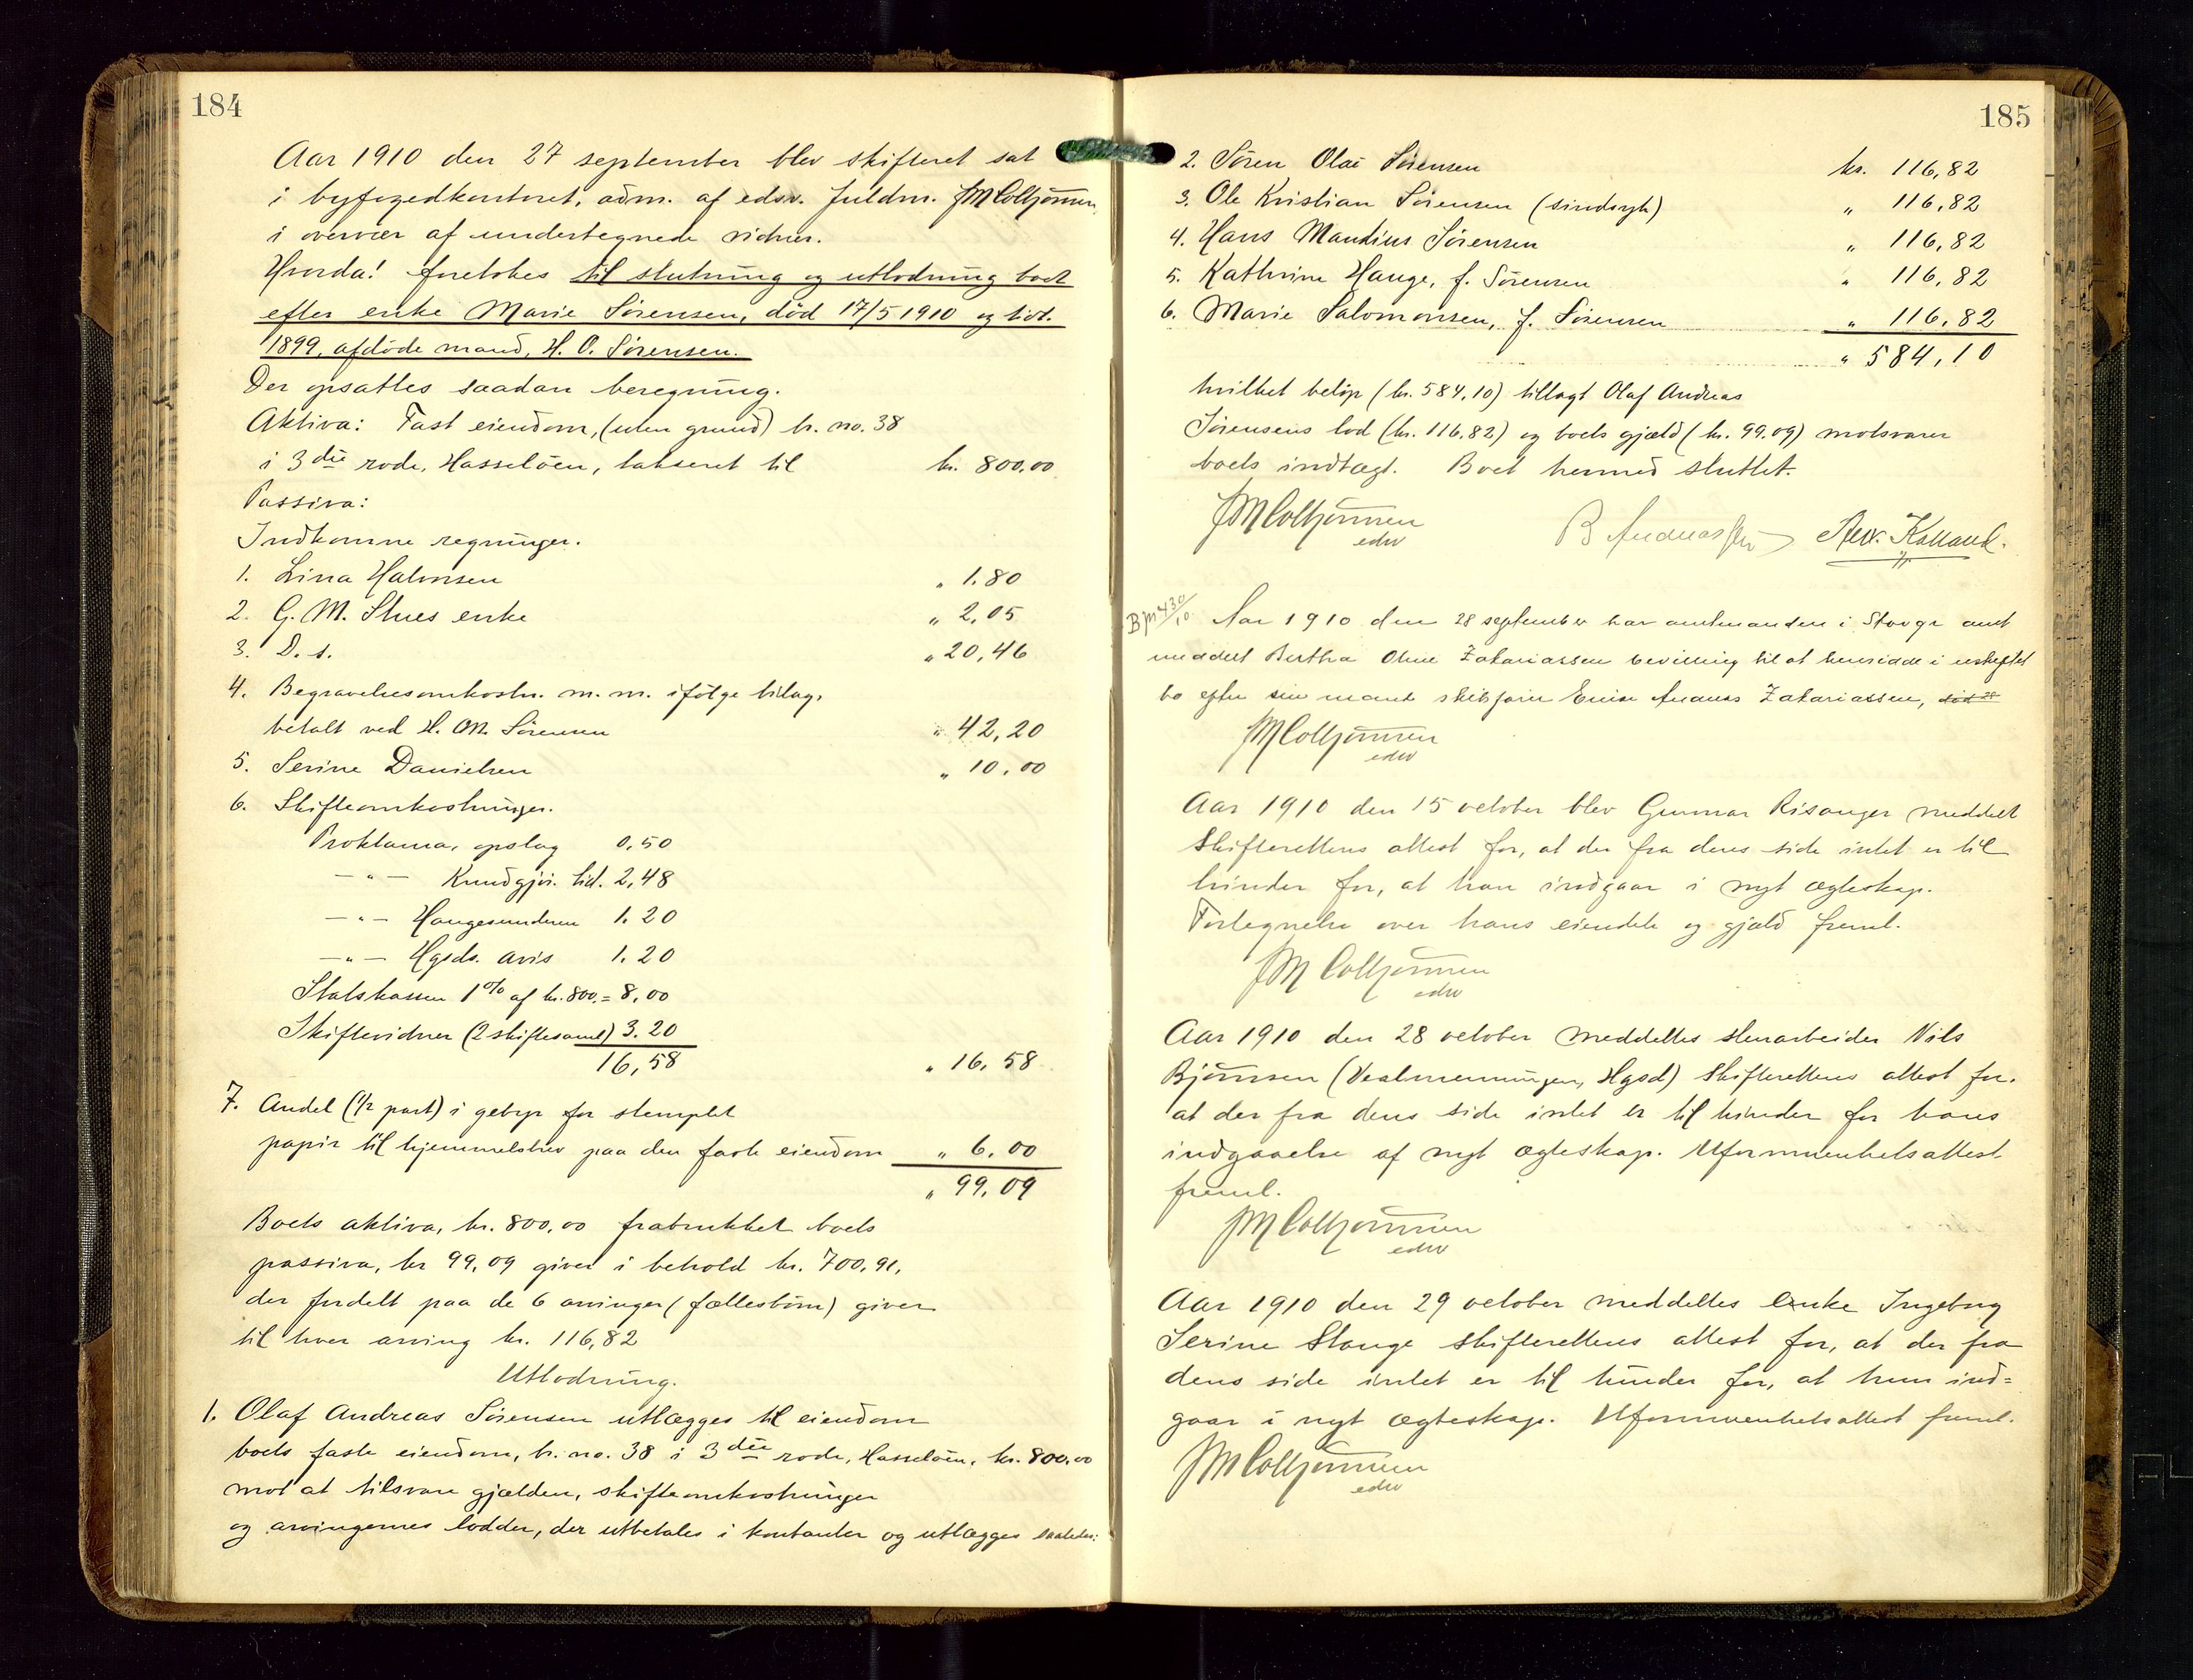 184
Aar 1910 den 27 september blev skifteret sat
i byfogedkontoret, adm. af edsv. fuldm. JMColbjørnsen
i overvær af undertegnede vidner.
Hvorda! foretokes til slutning og utlodning boet
efter enke Marie Sørensen, død 17/5 1910 og tidl.
1899, afdøde mand, H. O. Sørensen.
Der opsattes saadan beregning.
Aktiva: Fast eiendom, (uten grund) br. no. 38
i 3die rode, Hasseløen, takseret til kr. 800,00
Passiva:
Indkomne regninger.
1. Lina Halvorsen " 1.80
2. G. M. Stues enke " 2,05
3. D. s. " 20,46
4. Begravelsesomkostn. m. m. ifølge bilag,
betalt ved H. M. Sørensen " 42,20
5. Serine Danielsen " 10,00
6. Skifteomkostninger.
Proklama, opslag 0,50
—"— Kundgjør. tid. 2,48
—"— Haugesunderen 1.20
—"— Hgsds. avis 1.20
Statskassen 1% af kr. 800,= 8,00
Skiftevidner (2 skiftesaml) 3.20
16,58 " 16,58
7. Andel (1/2 part) i gebyr for stemplet
papir til hjemmelsbrev paa den faste eiendom " 6,00
" 99,09
Boets aktiva, kr. 800,00 fratrukket boets
passiva, kr 99,09 giver i behold kr. 700,91,
der fordelt paa de 6 arvinger (fællesbørn) giver
til hver arving kr. 116,82
Utlodning.
1. Olaf Andreas Sørensen utlægges til eiendom
boets faste eiendom, br. no. 38 i 3die rode, Hasseløen, kr. 800,00
mot at tilsvare gjælden, skifteomkostninger
og arvingernes lodder, der utbetales i kontanter og utlægges saaledes:
185
2. Søren Olai Sørensen kr. 116,82
3. Ole Kristian Sørensen (sindsyk) " 116,82
4. Hans Mandius Sørensen " 116,82
5. Kathrine Hauge, f. Sørensen " 116,82
6. Marie Salomonsen, f. Sørensen " 116,82
" 584,10
hvilket beløp (kr. 584,10) tillagt Olaf Andreas
Sørensens lod (kr. 116,82) og boets gjæld (kr. 99.09) motsvarer
boets indtægt. Boet hermed sluttet.
JMColbjørnsen
edsv
B Andreassen Alex. Kolland.
Aar 1910 den 28 september har amtmanden i Stavgr amt
meddelt Bertha Oline Zakariassen bevilling til at hensidde i uskiftet
bo efter sin mand skibsfører Andreas Zakariassen, død 28
JMColbjørnsen
edsv
Aar 1910 den 15 october blev Gunnar Risanger meddelt
skifterettens attest for, at der fra dens side intet er til
hinder for, at han indgaar i nyt ægteskap.
Fortegnelse over hans eiendele og gjæld freml.
JM Colbjørnsen
edsv
Aar 1910 den 28 october meddeltes stenarbeider Nils
Bjørnsen (Vealmenningen, Hgsd) skifterettens attest for,
at der fra dens side intet er til hinder for hans
indgaaelse af nyt ægteskap. Uformuenhetsattest
freml.
JMColbjørnsen
edsv
Aar 1910 den 29 october meddeltes enke Ingeborg
Serine Stange skifterettens attest for, at der fra
dens side intet er til hinder for, at hun ind=
gaar i nyt ægteskap. Uformuenhetsattest freml.
JMColbjørnsen
edsv